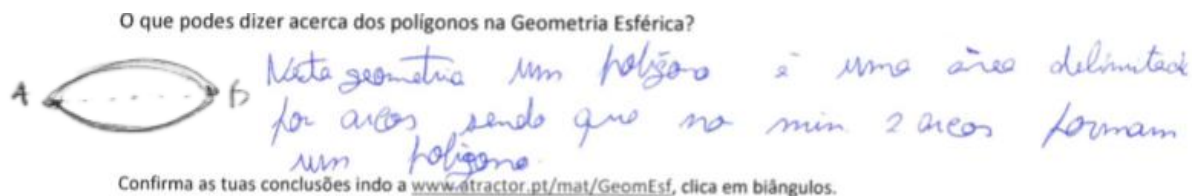 O que podes dizer acerca dos polígonos na Geometria Esférica?
A B Nesta geometria um polígono é uma área delimitada
por arcos sendo que no min. 2 arcos formam
um polígono.
Confirma as tuas conclusões indo a www.atractor.pt/mat/GeomEsf, clica em biângulos.